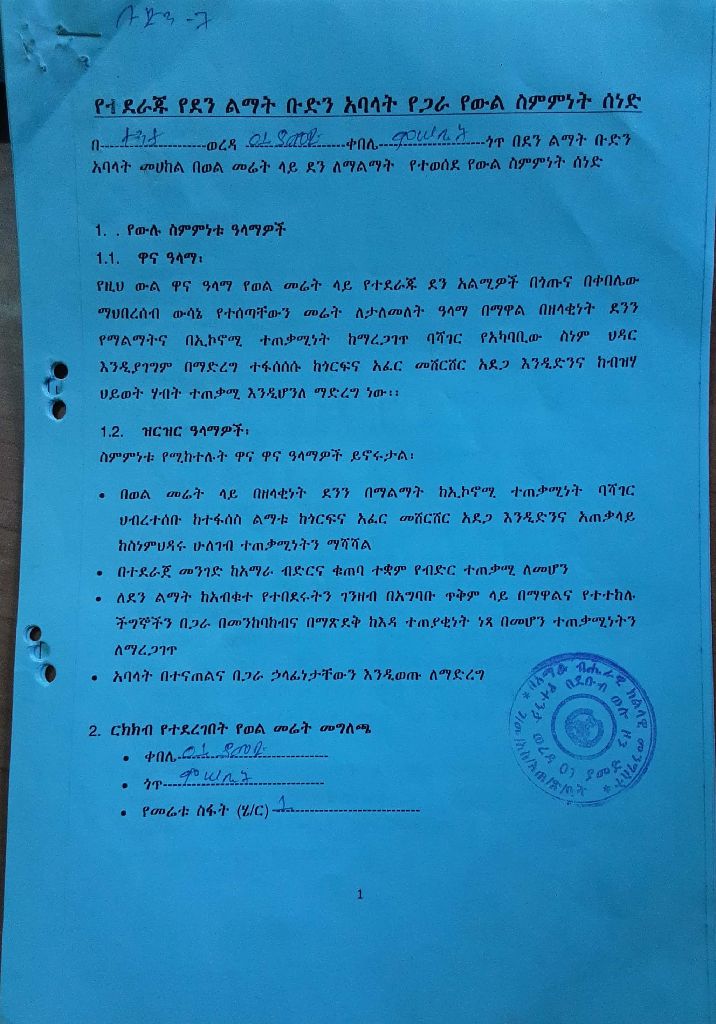 የተደራጁ የደን ልማት ቡድን አባላት የጋራ የውል ስምምነት ሰነድ
በ---------------------ወረዳ --------------------ቀበሌ---------------------ጎጥ በደን ልማት ቡድን
አባላት መሀከል በወል መሬት ላይ ደን ለማልማት የተወሰደ የውል ስምምነት ሰነድ
1. . የውሉ ስምምነቱ ዓላማዎች
1.1. ዋና ዓላማ፡
የዚህ ውል ዋና ዓላማ የወል መሬት ላይ የተደራጁ ደን አልሚዎች በጎጡና በቀበሌው
ማህበረሰብ ውሳኔ የተሰጣቸውን መሬት ለታለመለት ዓላማ በማዋል በዘላቂነት ደንን
የማልማትና በኢኮኖሚ ተጠቃሚነት ከማረጋገጥ ባሻገር የአካባቢው ስነም ህዳር
እንዲያገግም በማድረግ ተፋሰሰሱ ከጎርፍና አፈር መሸርሸር አደጋ እንዲድንና ከብዝሃ
ህይወት ሃብት ተጠቃሚ እንዲሆንለ ማድረግ ነው፡፡
1.2. ዝርዝር ዓላማዎች፡
ስምምነቱ የሚከተሉት ዋና ዋና ዓላማዎች ይኖሩታል፡
• በወል መሬት ላይ በዘላቂነት ደንን በማልማት ከኢኮኖሚ ተጠቃሚነት ባሻገር
ህብረተሰቡ ከተፋሰስ ልማቱ ከጎርፍና አፈር መሸርሸር አደጋ እንዲድንና አጠቃላይ
ከስነምህዳሩ ሁለገብ ተጠቃሚነትን ማሻሻል
• በተደራጀ መንገድ ከአማራ ብድርና ቁጠባ ተቋም የብድር ተጠቃሚ ለመሆን
• ለደን ልማት ከአብቁተ የተበደሩትን ገንዘብ በአግባቡ ጥቅም ላይ በማዋልና የተተከሉ
ችግኞችን በጋራ በመንከባከብና በማጽደቅ ከእዳ ተጠያቂነት ነጻ በመሆን ተጠቃሚነትን
ለማረጋገጥ
• አባላት በተናጠልና በጋራ ኃላፊነታቸውን እንዲወጡ ለማድረግ
2. ርክክብ የተደረገበት የወል መሬት መግለጫ
• ቀበሌ-----------------------------
• ጎጥ-------------------------------
• የመሬቱ ስፋት (ሄ/ር) 1-----------------------------
1